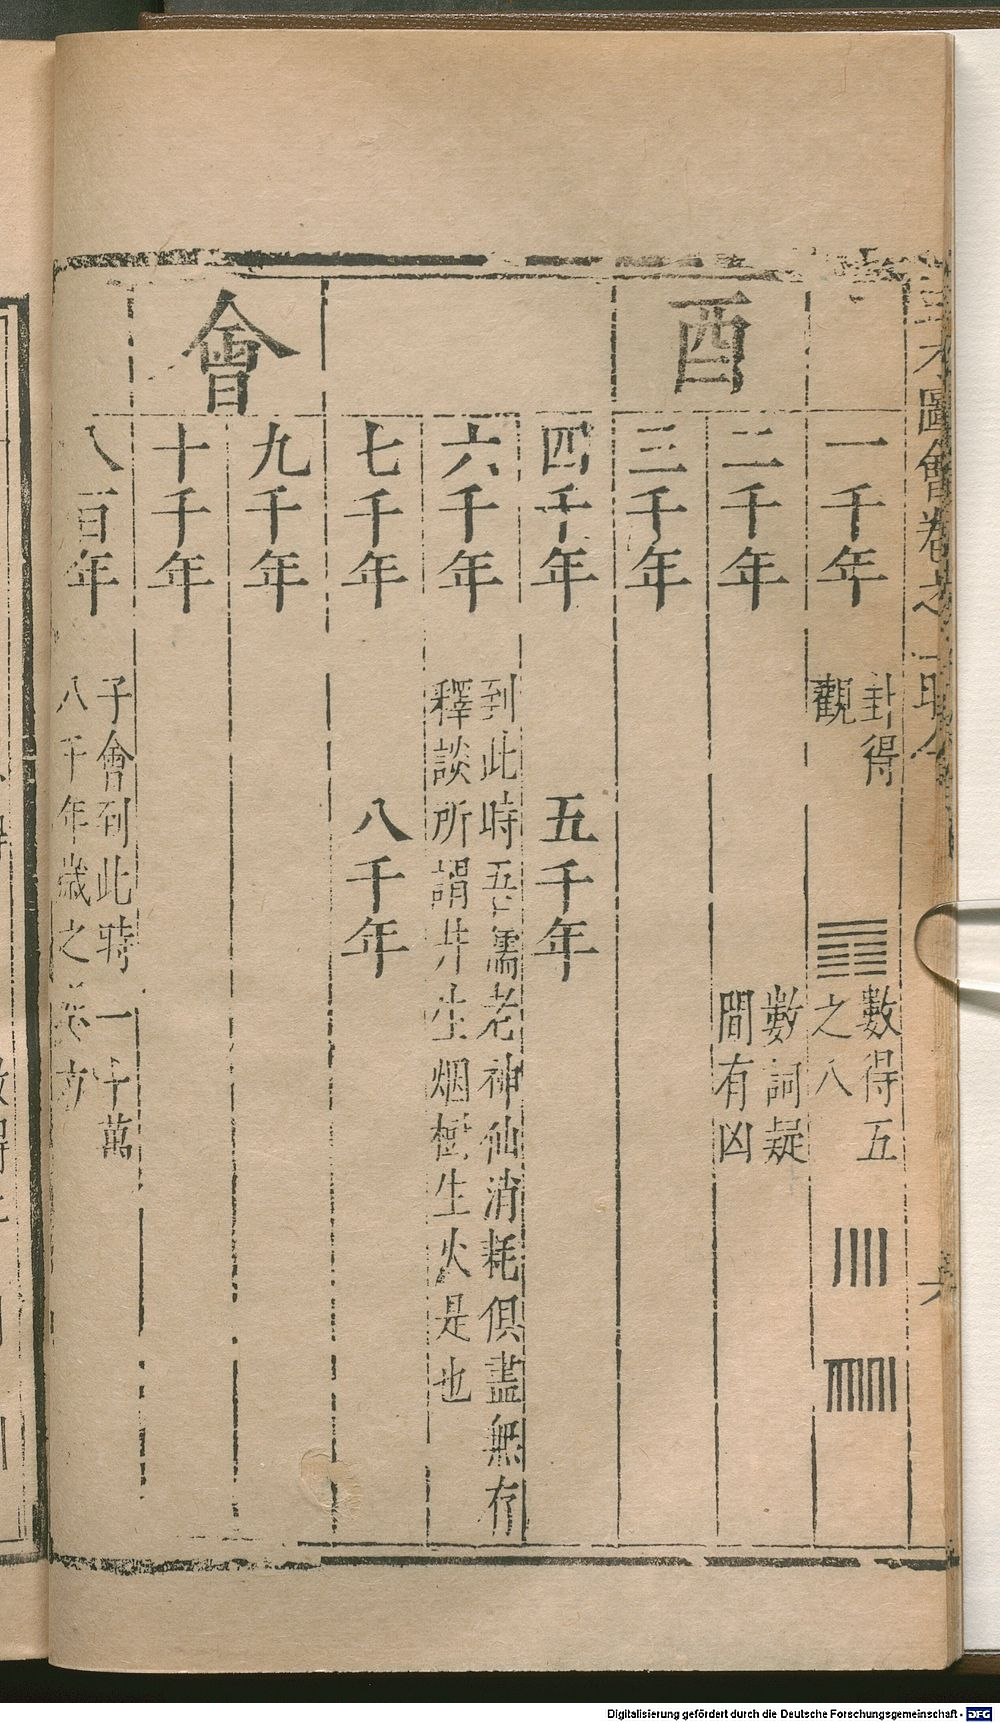 三才圖會卷之
酉會
一千年
卦得
觀
數得五
之八
二千年
數詞疑
間有凶
三千年
四千年
五千年
六千年
到此時吾儒老神仙消耗俱盡無存
釋談所謂井生烟樹生火是也
七千年
八千年
九千年
十千年
八百年
子會到此時一十萬
八千年歲之
Digitalisierung gefördert durch die Deutsche Forschungsgemeinschaft - DFG